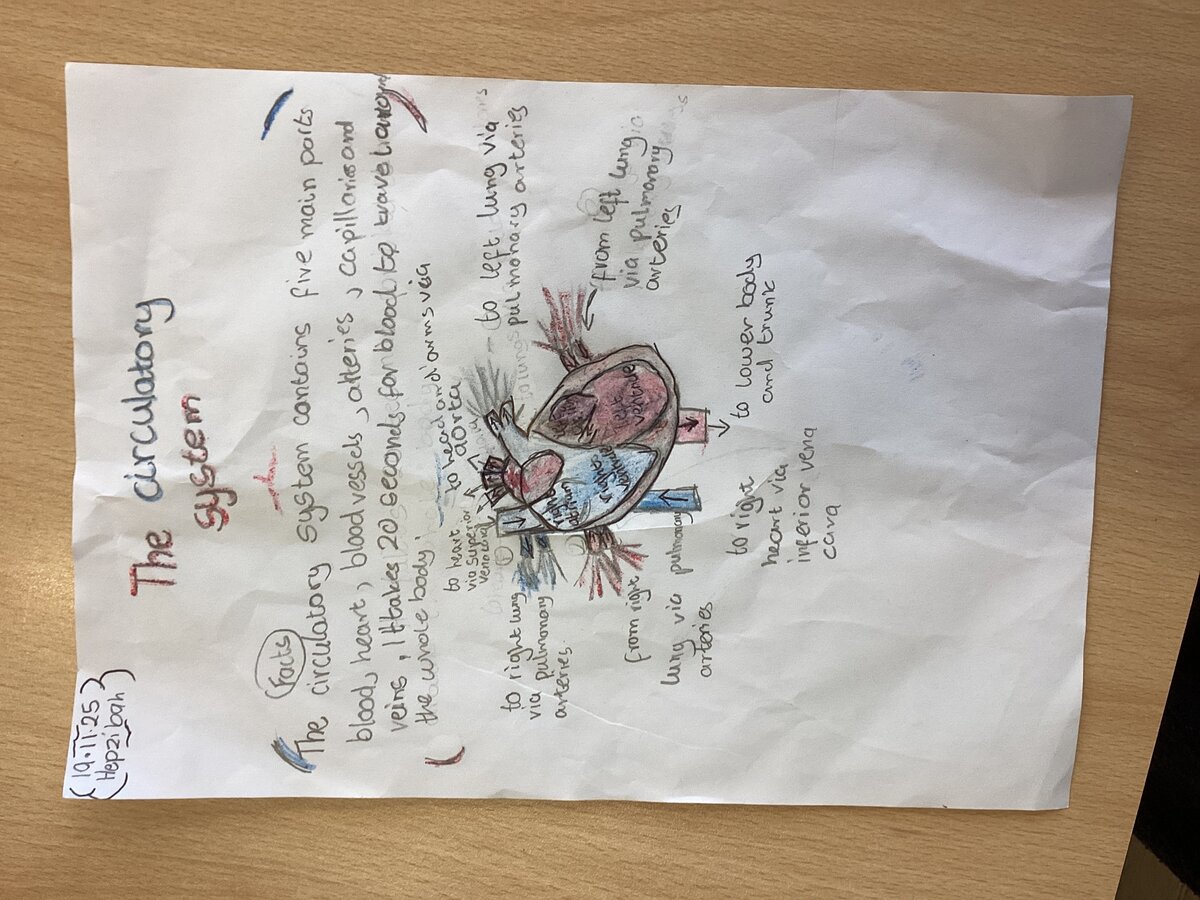 19.11.25
Hepzibah
The circulatory
system
Facts
The circulatory system contains five main parts
blood, heart, blood vessels, arteries, capillaries and
veins. It takes 20 seconds for blood to travel around
the whole body.
to heart
via superior
vena cava
to head and arms via
aorta
to left lung via
pulmonary arteries
from left lung
via pulmonary
arteries
to right lung
via pulmonary
arteries.
right
atrium
right
ventricle
left
ventricle
from right
lung via pulmonary
arteries
to right
heart via
inferior vena
cava
to lower body
and trunk